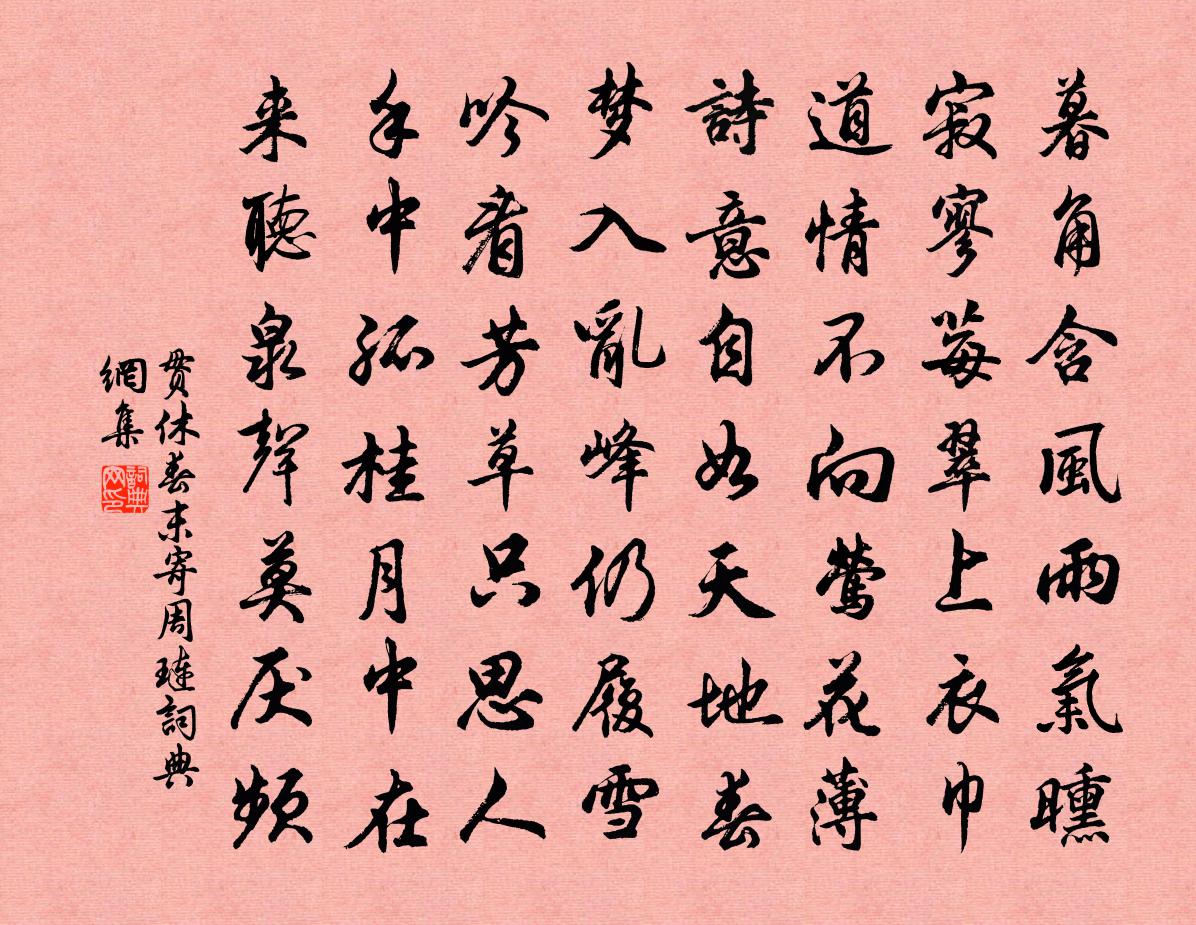 暮角含風雨氣曛
寂寥莓翠上衣巾
道情不向鶯花薄
詩意自如天地春
梦入亂峰仍履雪
吟看芳草只思人
手中孤桂月中在
来聽泉聲莫厌頻
贯休春末寄周璉詞典
網集
詞典网印